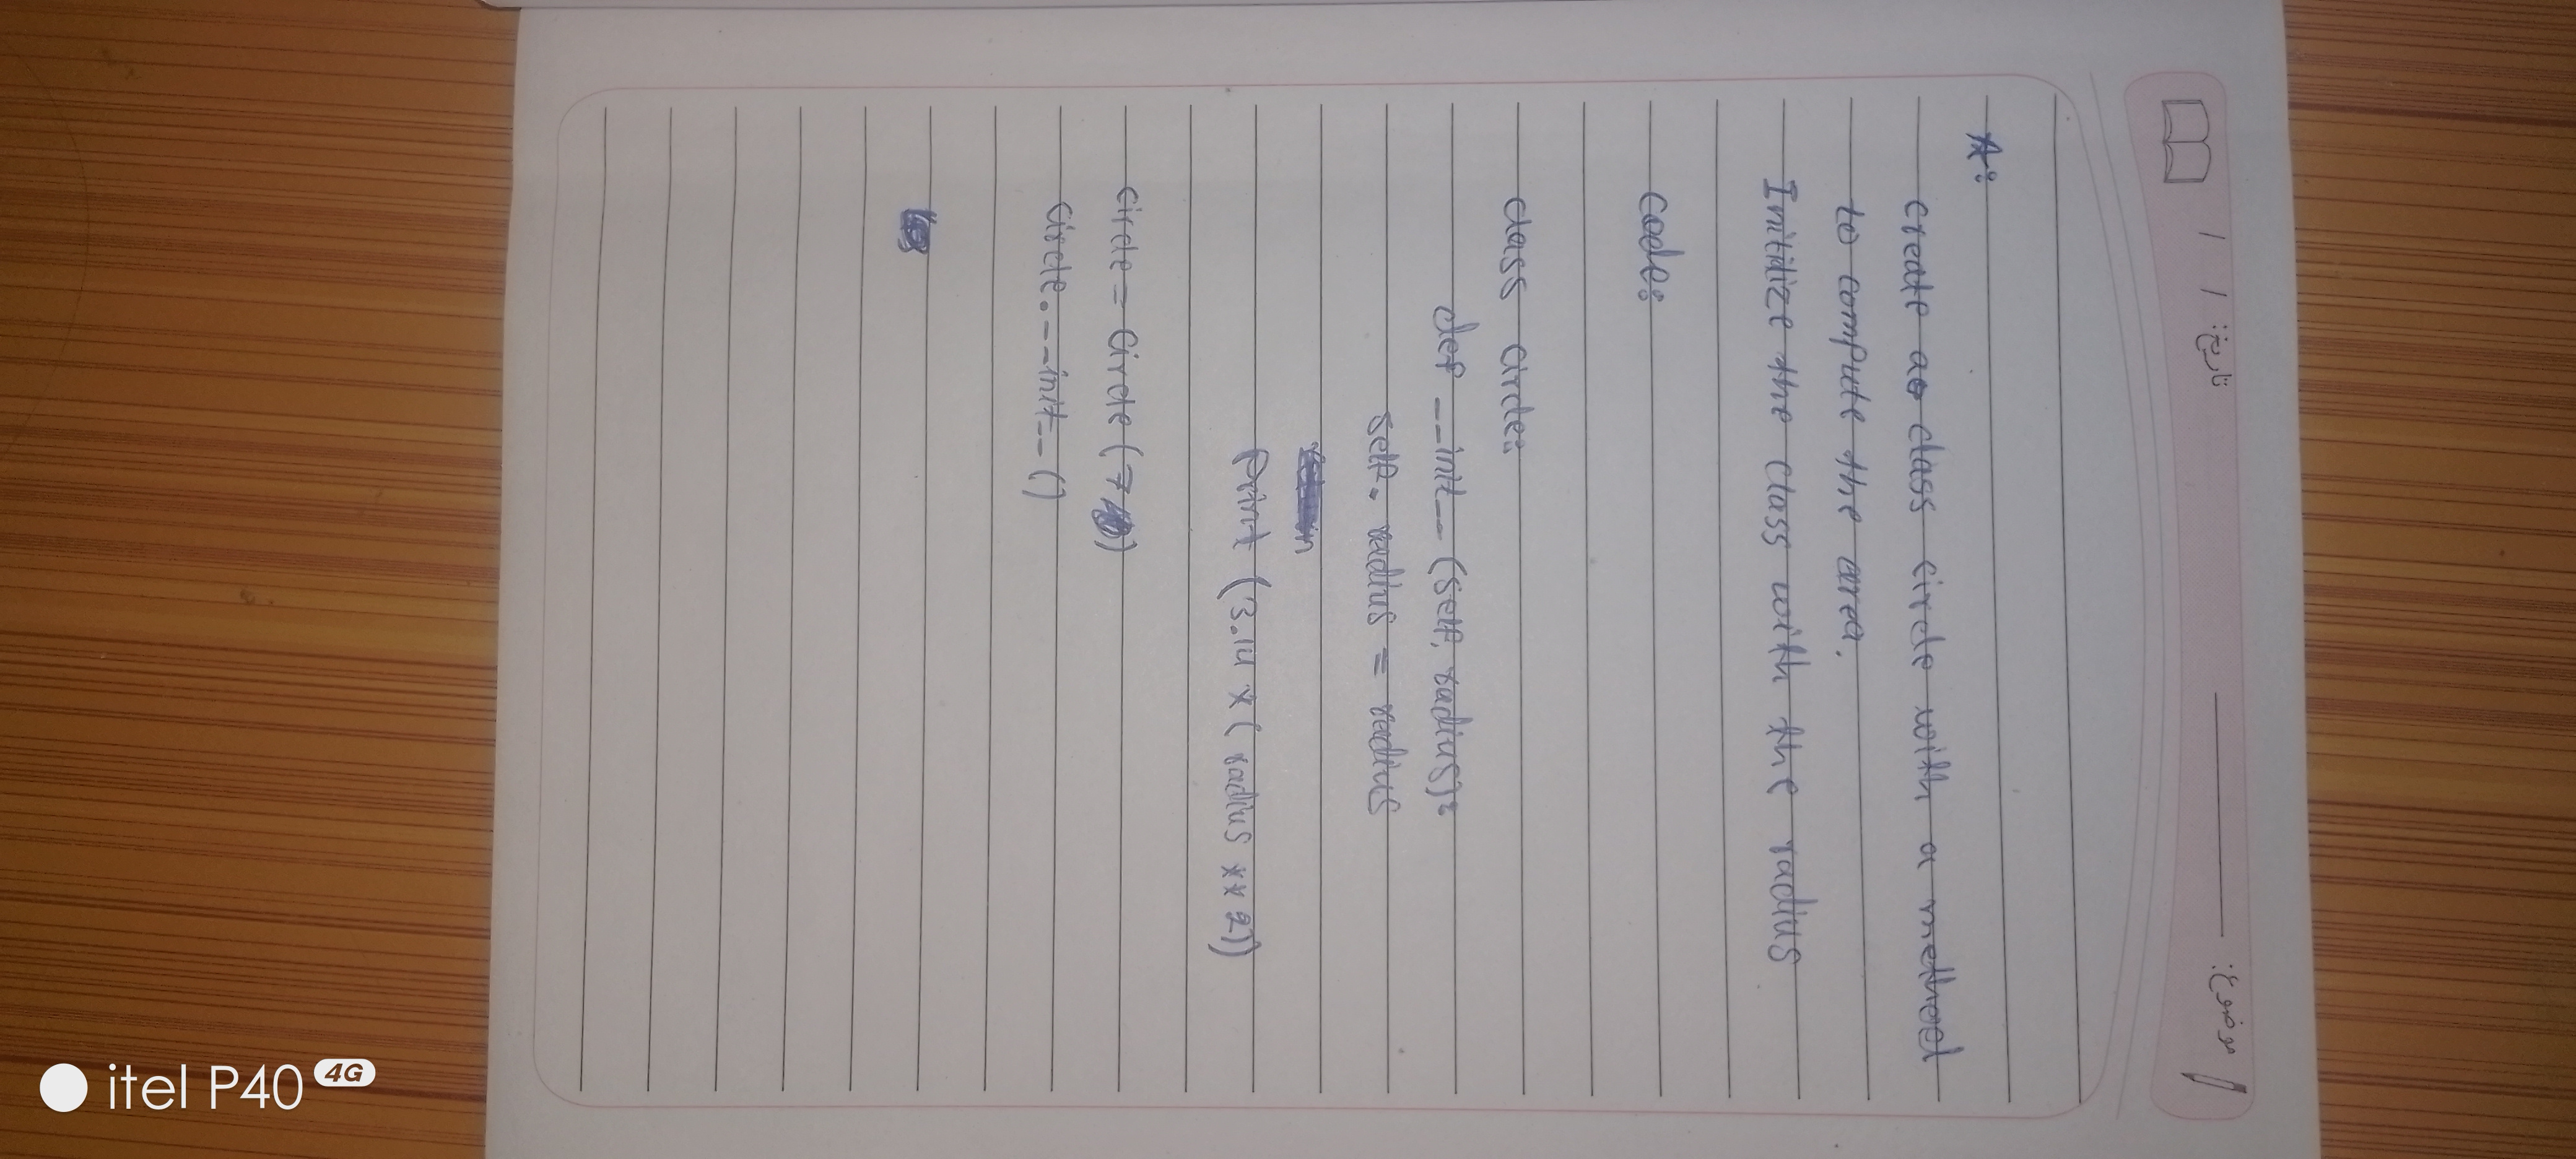 تاریخ: / / موضوع:
A:
create a class circle with a method
to compute the area.
Initilize the class with the radius
code:
class circle:
def __init__(self, radius):
self. radius = radius
print (3.14 * ( radius ** 2))
circle = circle (7)
circle.__init__()
itel P40 4G